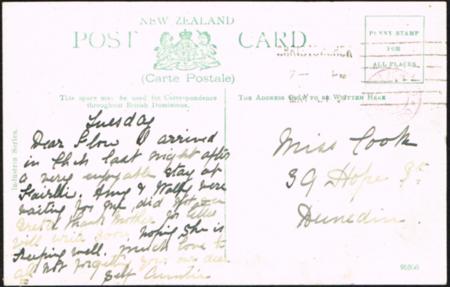 NEW ZEALAND
POST CARD
(Carte Postale)
PENNY STAMP
FOR
ALL PLACES
This space may be used for Correspondence
throughout British Dominions.
THE ADDRESS ONLY TO BE WRITTEN HERE
Industria Series.
Tuesday
Dear Flow I arrived
in ChCh last night after
a very enjoyable stay at
Fairlie. Amy & Wally were
waiting for me, did not
thank Mother for letter
will write soon hoping she is
keeping well. much love to
all not forgetting your own dear
Self Auntie
Miss Cook
39 Hope St
Dunedin